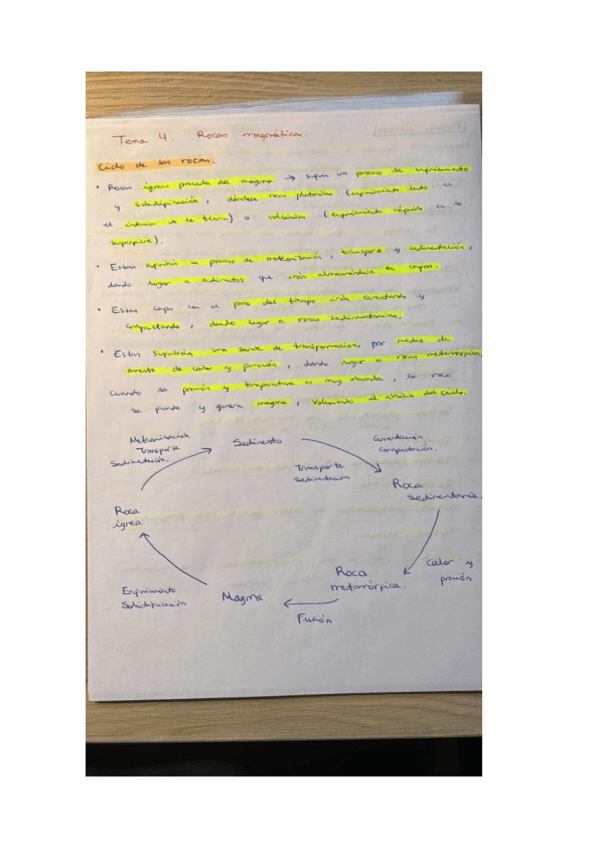 Tema 4. Rocas magmáticas.
Ciclo de las rocas.
• Rocas ígneas procede del magma → sufren un proceso de enfriamiento
y solidificación, dándose rocas plutónicas (enfriamiento lento en
el interior de la tierra) o volcánicas (enfriamiento rápido en la
superficie).
• Estas sufrirán un proceso de meteorización, transporte y sedimentación,
dando lugar a sedimentos que irán almacenándose en capas.
• Estas capas con el paso del tiempo irán cementando y
compactando, dando lugar a rocas sedimentarias.
• Estas sufrirán una serie de transformaciones por medio de
aumento de calor y presión, dando lugar a rocas metamórficas,
Cuando la presión y temperatura es muy elevada, la roca
se funde y genera magma, volviendo al inicio del ciclo.
Meteorización
Transporte
Sedimentación.
Sedimento
Cementación
Compactación.
Transporte
Sedimentación
Roca
sedimentaria.
Roca
ígnea
Calor y
presión
Roca
metamórfica.
Enfriamiento
Solidificación
Magma
Fusión